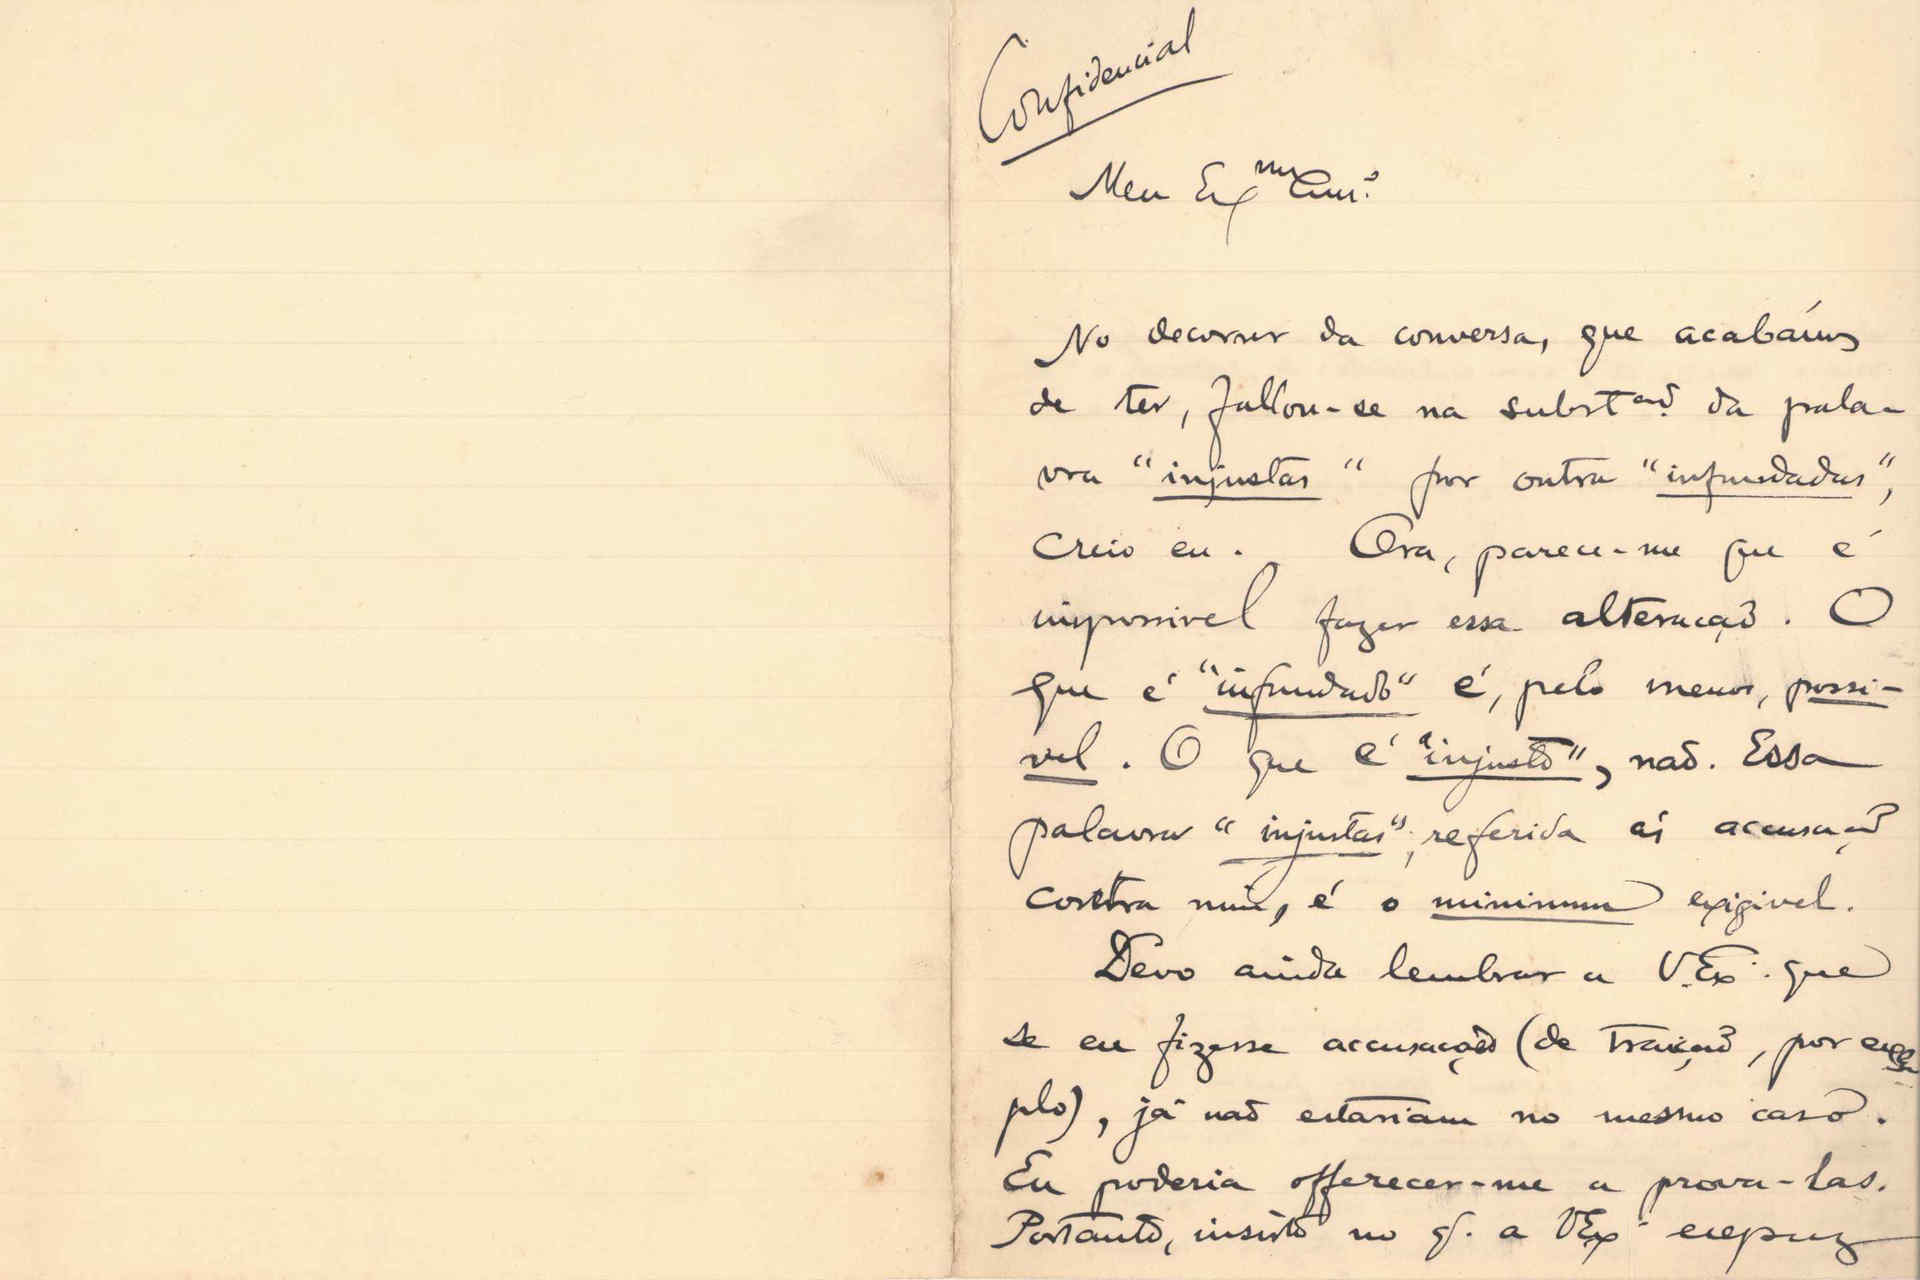 Confidencial
Meu Ex.mo Am.º
No decorrer da conversa, que acabámos
de ter, fallou-se na subst.ão da pala-
vra "injustas" por outra "infundadas",
creio eu. Ora, parece-me que é
impossivel fazer essa alteração. O
que é "infundado" é, pelo menos, possi-
vel. O que é "injusto", não. Essa
palavra "injustas", referida ás accusação
contra mim, é o minimum exigivel.
Devo ainda lembrar a V. Ex.ª que
se eu fizesse accusações (de traição, por exem
plo), já não estariam no mesmo caso.
Eu poderia offerecer-me a prova-las.
Portanto, insisto no q. a V Exª expuz